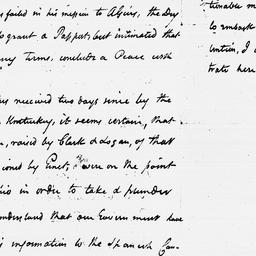 failed in his mission to Algiers, the Dey
to grant a Passport, but intimated that
ney Terms, conclude a Peace with
received two days since by the
Kentucky, it seems certain, that
, raised by Clark & Logan, of that
ioned by Genet, were on the point
hio in order to take & plunder
understand that our Government have
information to the Spanish Com-
tionable m
to embark
untrin, I
trate here